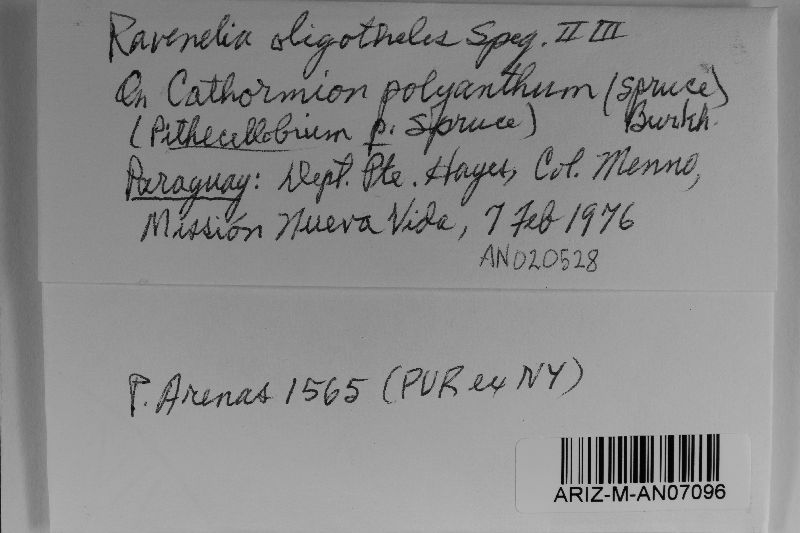 Ravenelia oligotheles Speg. II III
On Cathormion polyanthum (Spruce)
(Pithecellobium p. Spruce) Burkh.
Paraguay: Dept. Pte. Hayes, Col. Menno,
Misión Nueva Vida, 7 Feb 1976
AN020528
P. Arenas 1565 (PUR ex NY)
ARIZ-M-AN07096